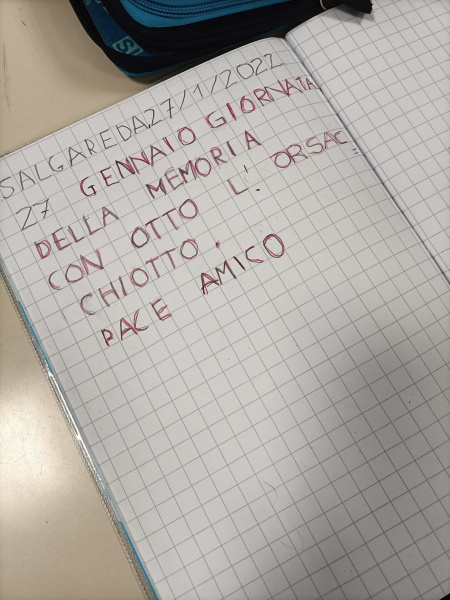 SALGAREDA27/1/2022
27 GENNAIO GIORNATA
DELLA MEMORIA
CON OTTO L'. ORSAC=
CHIOTTO.
PACE AMICO